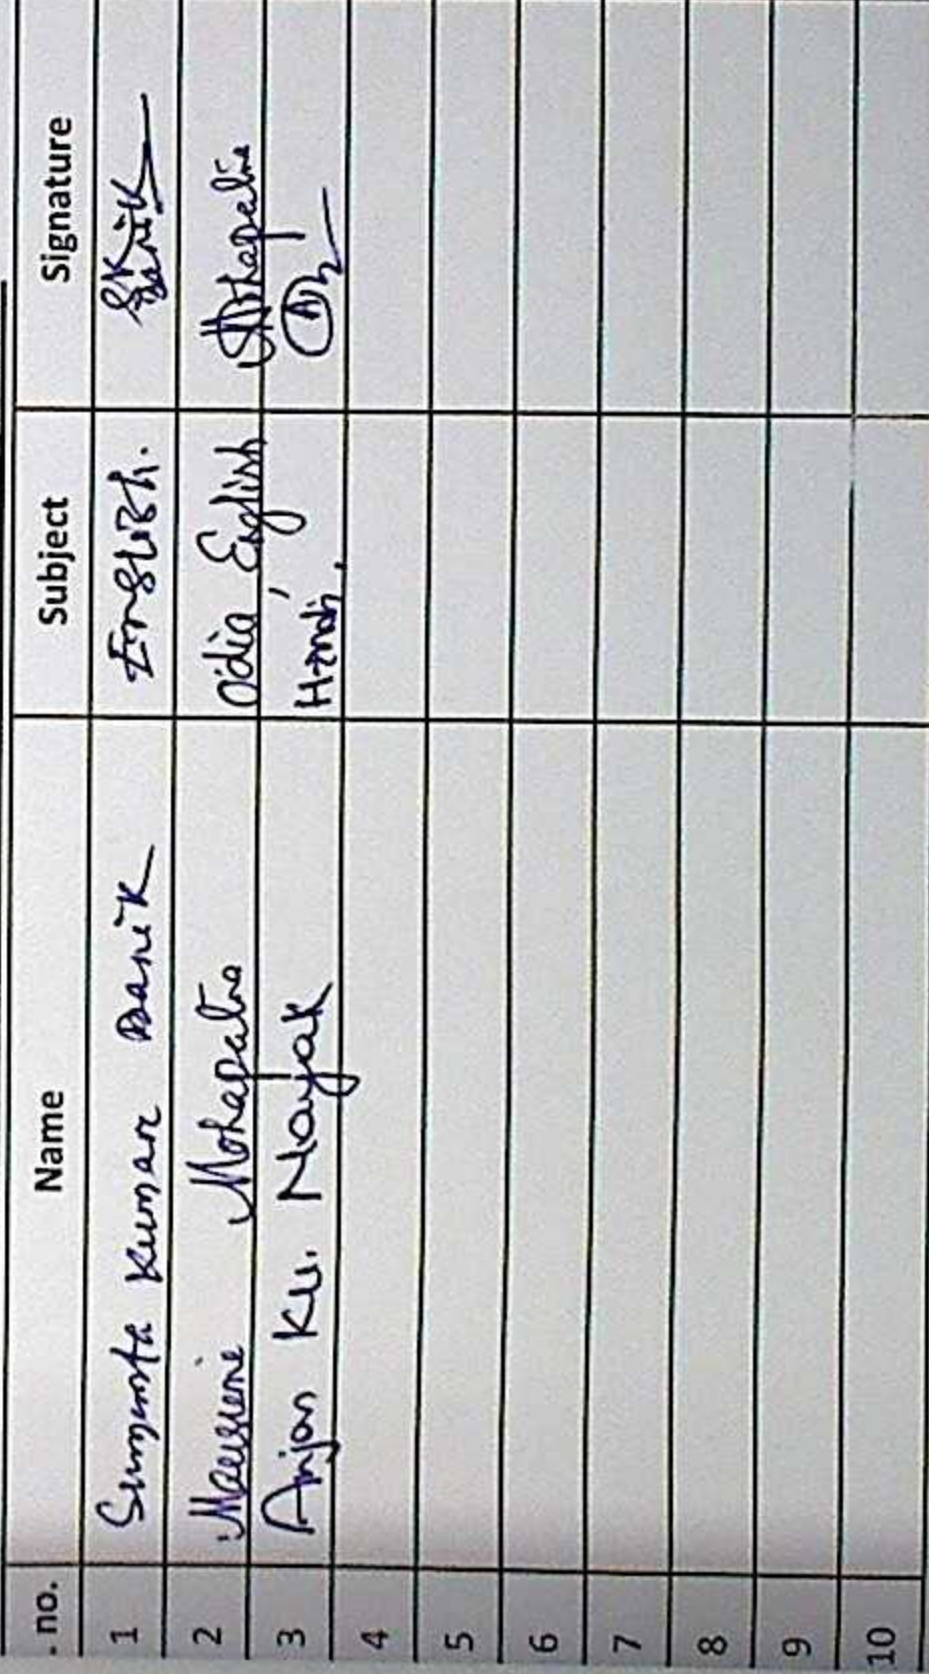 . no. Name Subject Signature
1 Sumanta Kumar Banik English. SK Banik
2 Mausumi Mohapatra Odia, English Mohapatra
3 Anjan Ku. Nayak Hindi.
4
5
6
7
8
9
10